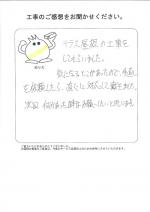 工事のご感想をお聞かせください。
テラス屋根の工事を
してもらいました。
気になるところがあったので、手直し
を依頼したら、直ぐに対応して頂きました。
次回 何かあった時はお願いしたいと思います。